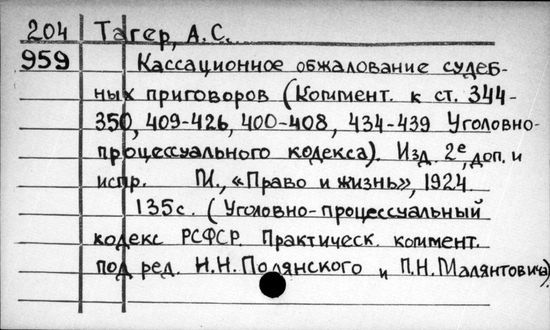 204 Тагер, А.С.
959 Кассационное обжалование судеб-
ных приговоров (Коммент. к ст. 344-
350, 409-426, 400-408, 434-439 Уголовно-
процессуального кодекса). Изд. 2е, доп. и
испр. М., «Право и жизнь», 1924
135с. (Уголовно-процессуальный
кодекс РСФСР. Практическ. коммент.
под ред. Н.Н.Полянского и П.Н.Малянтовича).